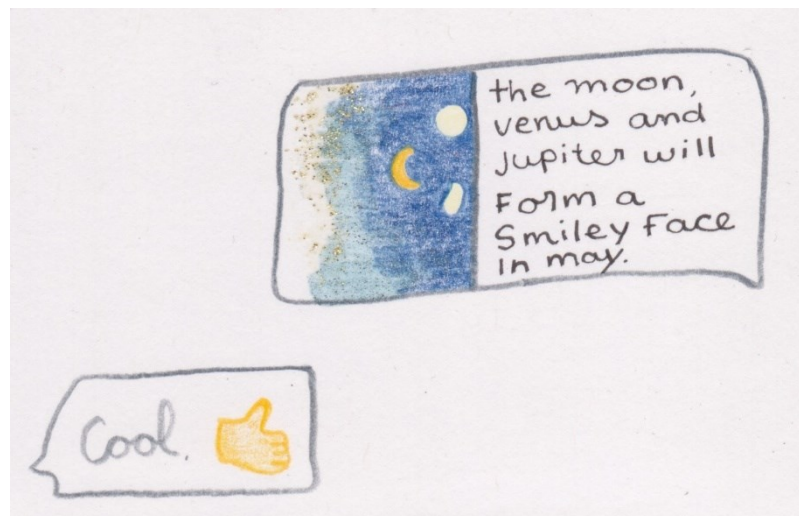 the moon,
venus and
Jupiter will
Form a
Smiley Face
in may.
Cool.